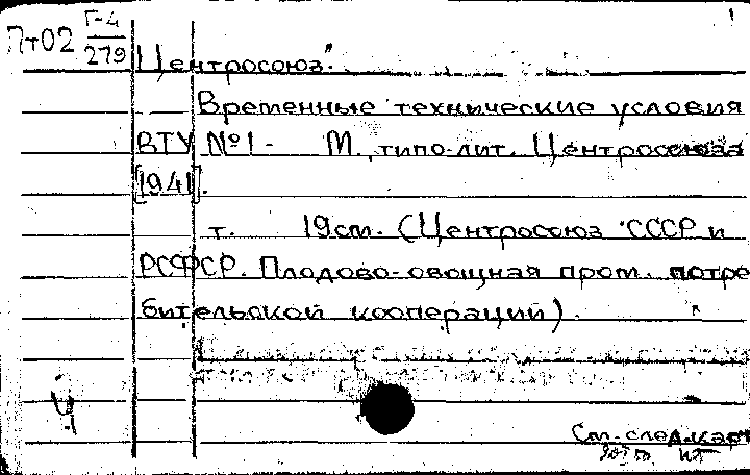 Пт02 Г-4
279
"Центросоюз".
Временные технические условия
ВТУ №1- М., типо-лит. Центросоюза
[1941].
т. 19см. (Центросоюз СССР и
РСФСР. Плодово-овощная пром. потре
бительской кооперации).
Ч
См. след. карт